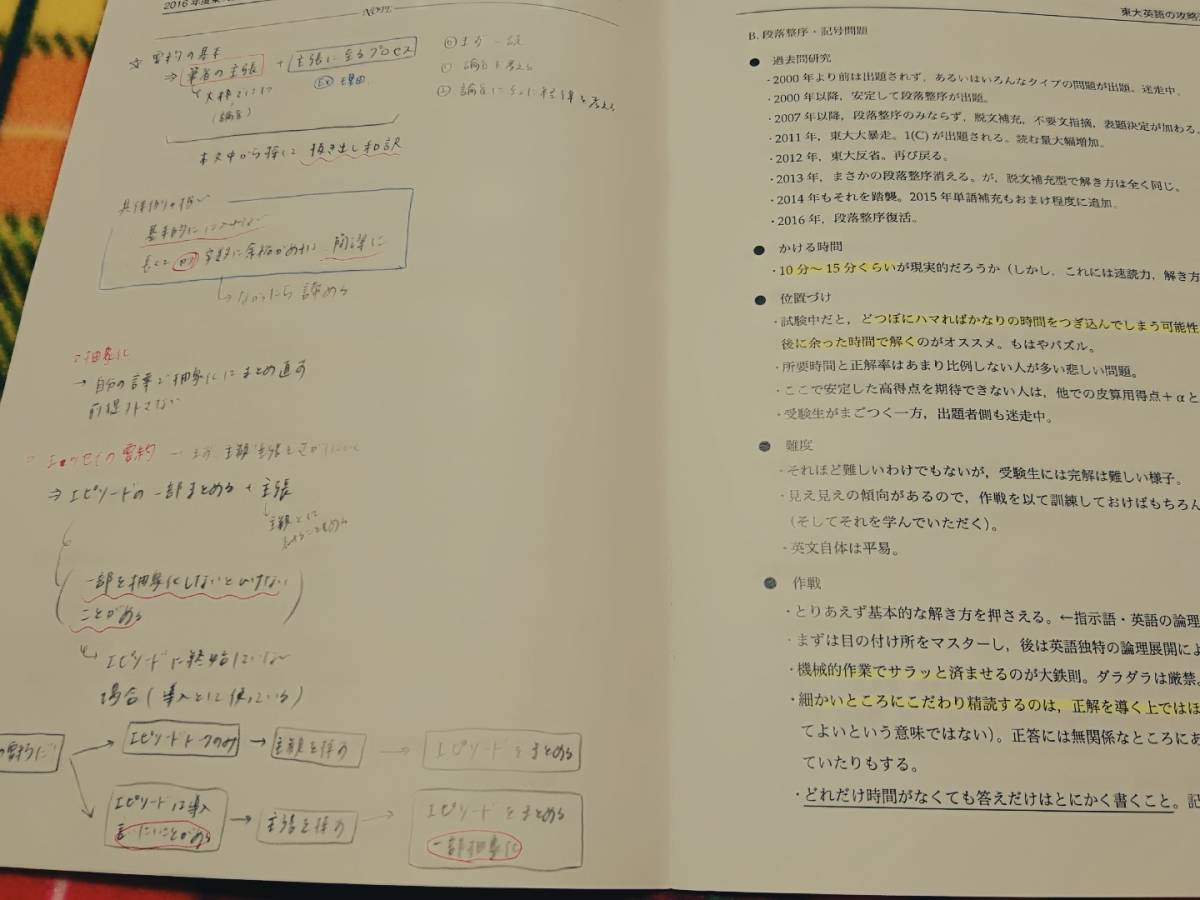 2016年度東
NOTE
☆ 要約の基本
⇒ 筆者の主張 + 主張に至るプロセス
大枠
(論旨)
Ex 理由
⓪ まず一読
① 論旨考える
本文中から探して 抜き出し和訳
具体例の扱い
基本的に
字数に余裕があれば 簡潔に
なかったら諦める
抽象化
→ 自分の言葉で抽象化にまとめ直す
エッセイの要約
⇒ エピソードの一部まとめる + 主張
一部を抽象化しないといけない
ことがある
エピソードに終始していない
場合(導入として使っている)
の要約に
エピソードトークのみ → 主題を探す → エピソードをまとめる
エピソードは導入
言いたいことがある → 主張を探す → エピソードをまとめる
一部抽象化
東大英語の攻略
B. 段落整序・記号問題
● 過去問研究
・2000年より前は出題されず,あるいはいろんなタイプの問題が出題。迷走中。
・2000年以降,安定して段落整序が出題。
・2007年以降,段落整序のみならず,脱文補充,不要文指摘,表題決定が加わる。
・2011年,東大大暴走。1(C)が出題される。読む量大幅増加。
・2012年,東大反省。再び戻る。
・2013年,まさかの段落整序消える。が,脱文補充型で解き方は全く同じ。
・2014年もそれを踏襲。2015年単語補充もおまけ程度に追加。
・2016年,段落整序復活。
● かける時間
・10分〜15分くらいが現実的だろうか(しかし,これには速読力,解き方
● 位置づけ
・試験中だと,どつぼにハマればかなりの時間をつぎ込んでしまう可能性
後に余った時間で解くのがオススメ。もはやパズル。
・所要時間と正解率はあまり比例しない人が多い悲しい問題。
・ここで安定した高得点を期待できない人は,他での皮算用得点+αと
・受験生がまごつく一方,出題者側も迷走中。
● 難度
・それほど難しいわけでもないが,受験生には完解は難しい様子。
・見え見えの傾向があるので,作戦を以て訓練しておけばもちろん
(そしてそれを学んでいただく)。
・英文自体は平易。
● 作戦
・とりあえず基本的な解き方を押さえる。←指示語・英語の論理
・まずは目の付け所をマスターし,後は英語独特の論理展開によ
・機械的作業でサラッと済ませるのが大鉄則。ダラダラは厳禁。
・細かいところにこだわり精読するのは,正解を導く上ではほ
てよいという意味ではない)。正答には無関係なところにあ
ていたりもする。
・どれだけ時間がなくても答えだけはとにかく書くこと。記